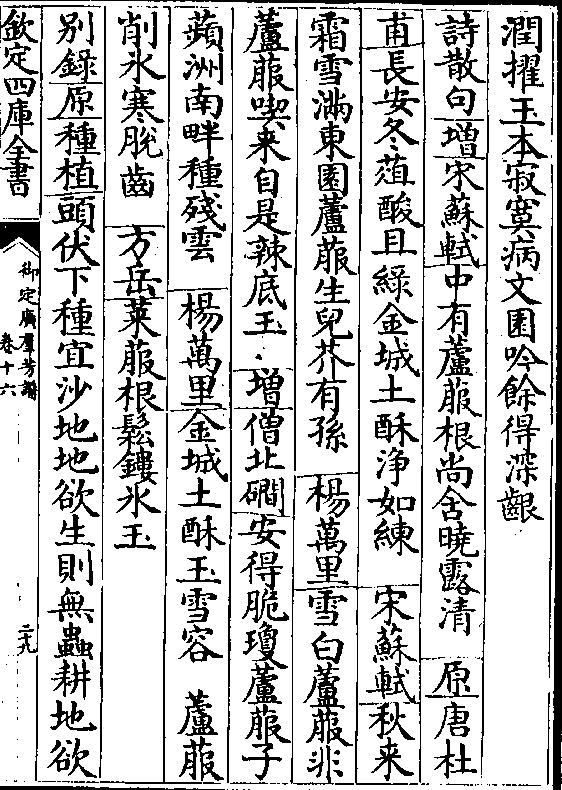 潤擢玉本寂寞病文園吟餘得深齦
詩散句增宋蘇軾中有蘆菔根尚含曉露清 原唐杜
甫長安冬葅酸且綠金城土酥淨如練 宋蘇軾秋来
霜雪滿東園蘆菔生兒芥有孫 楊萬里雪白蘆菔非
蘆菔喫来自是辣底玉 增僧北磵安得脆瓊蘆菔子
蘋洲南畔種殘雲 楊萬里金城土酥玉雪容 蘆菔
削氷寒脫齒 方岳萊菔根鬆鏤氷玉
别錄原種植頭伏下種宜沙地地欲生則無蟲耕地欲
欽定四庫全書
御定廣羣芳譜
卷十六
二十九